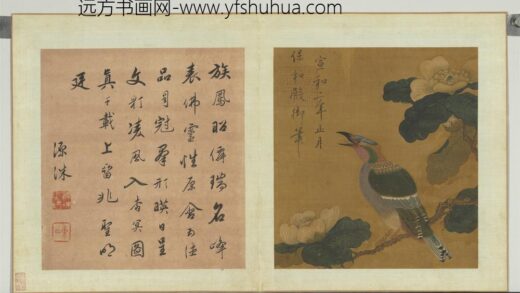 远方书画网- www.yfshuhua.com
族鳳昭瑞名峰
表佛靈性原含五德
品用冠羣形暎日呈
文彩凌風入杳冥圖
真千載上留兆聖明
廷
源洙
宣和二年正月
保和殿御筆